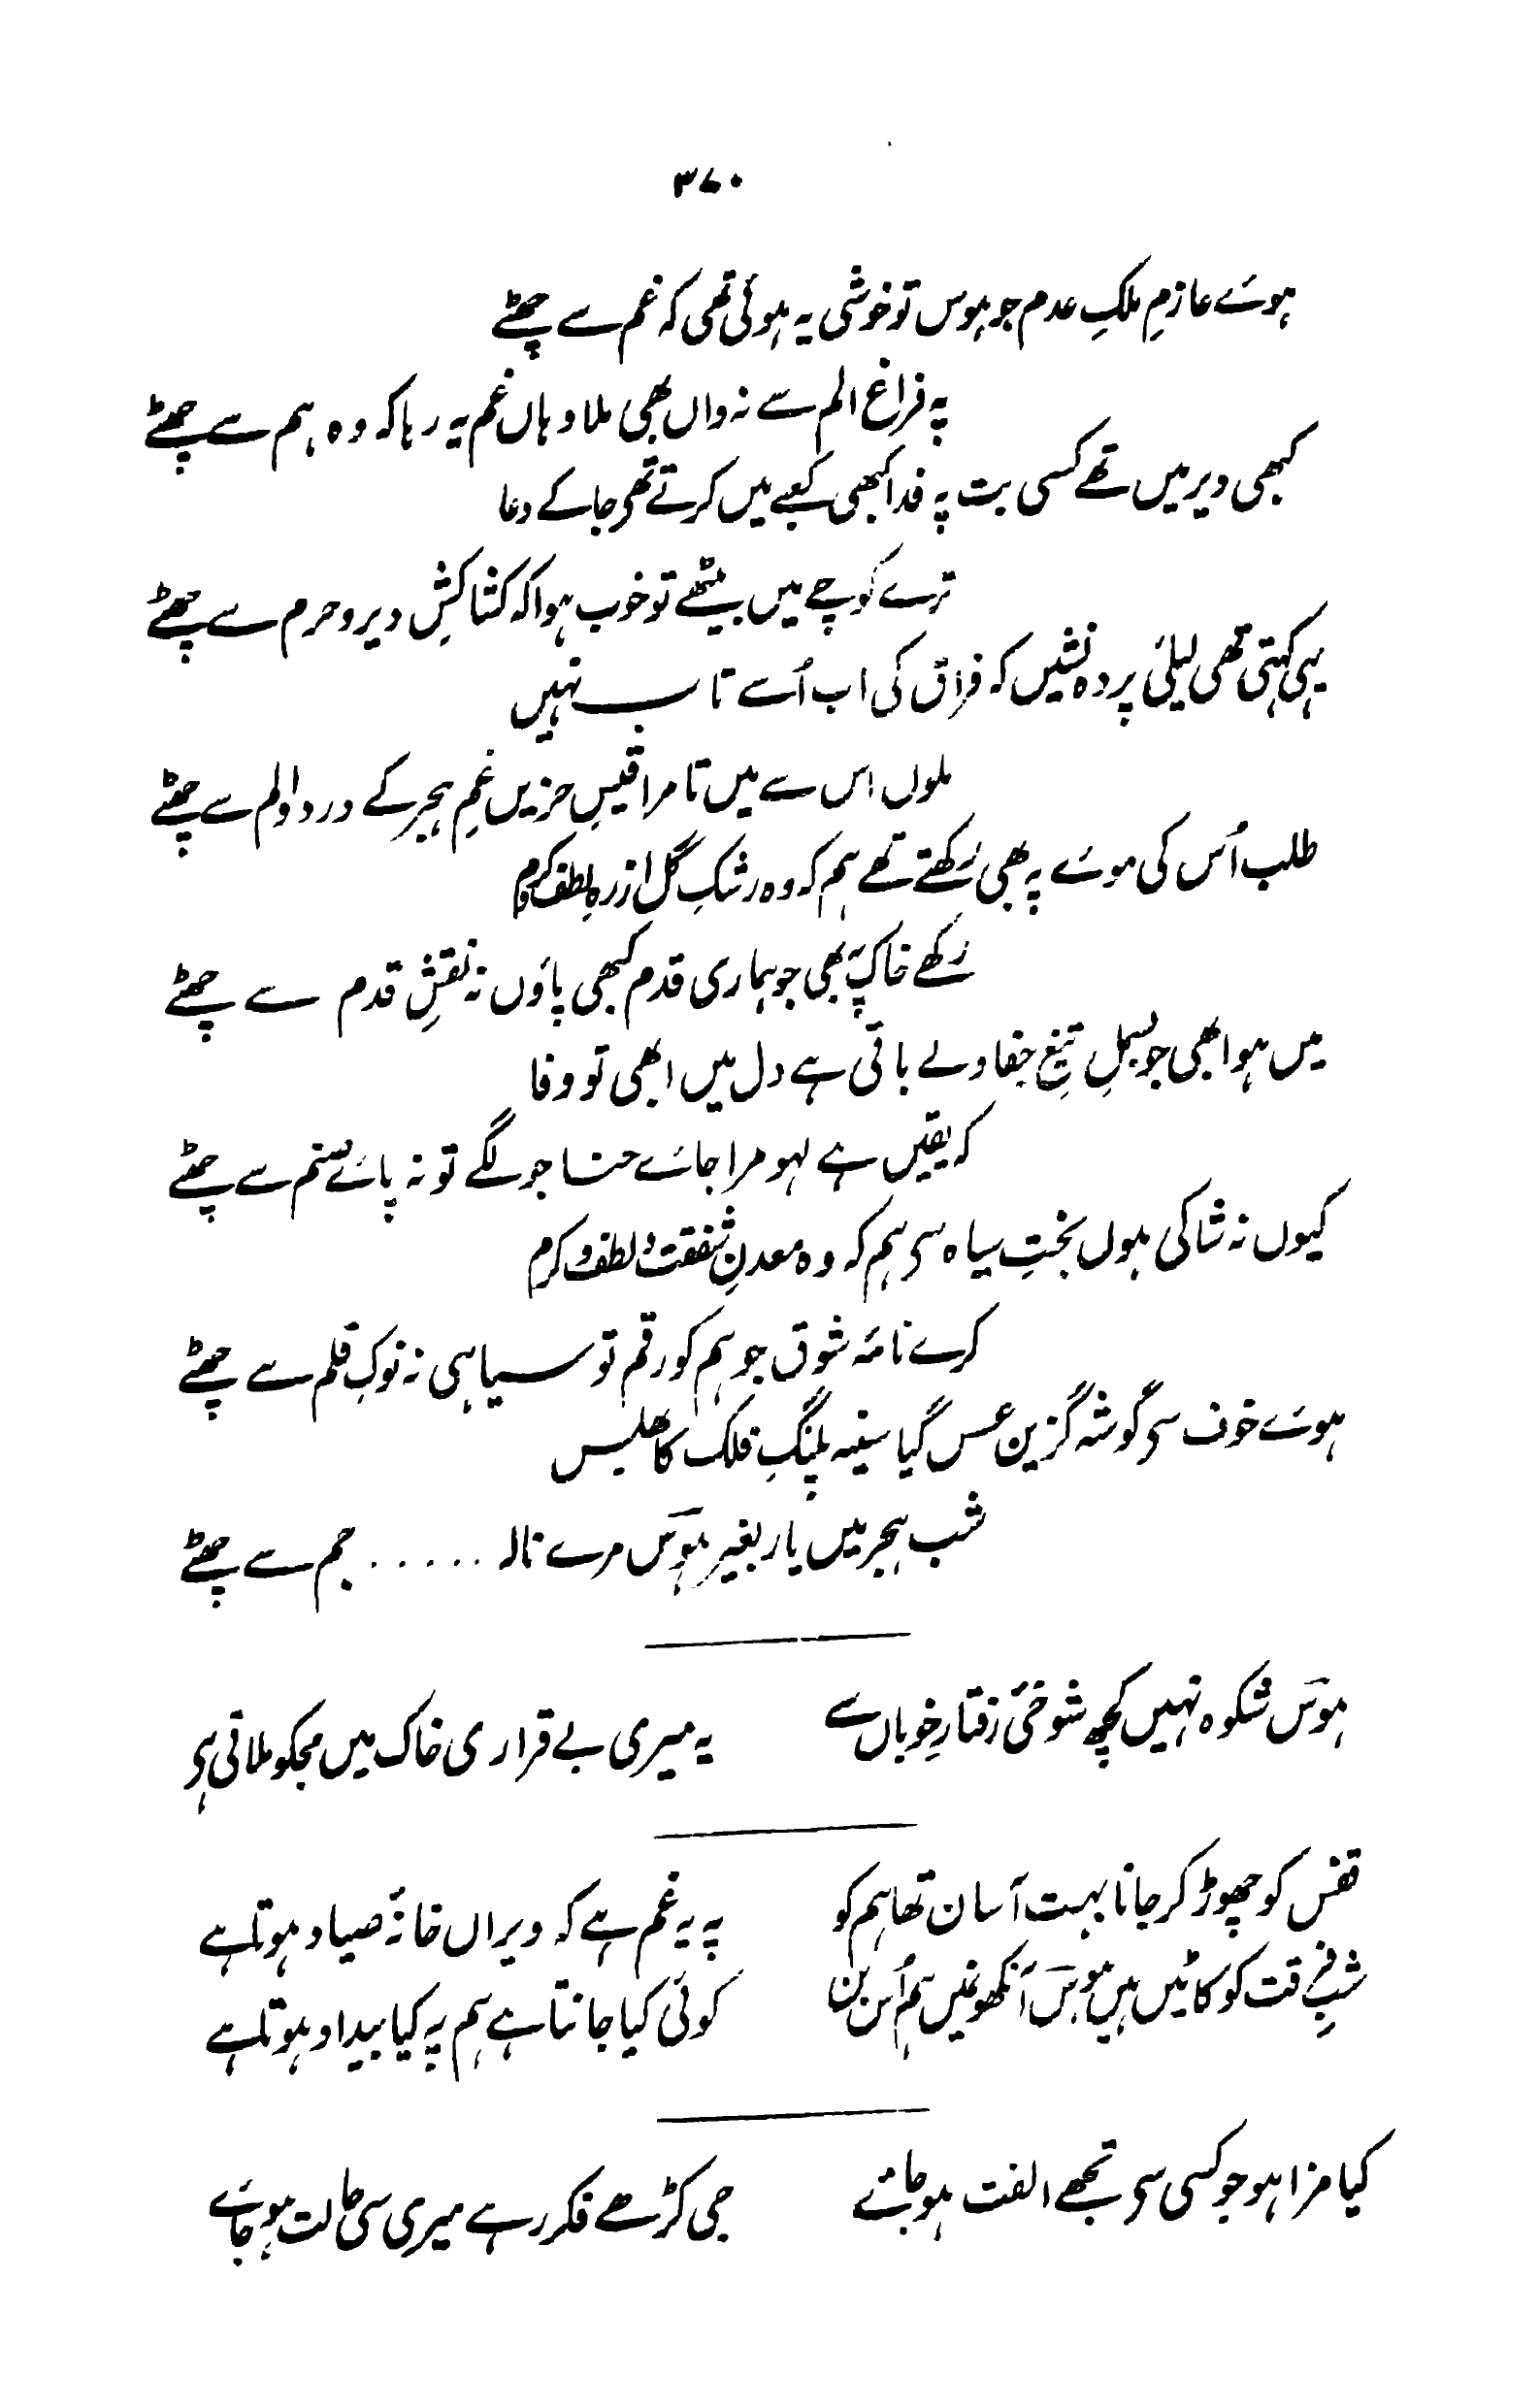 ۳۷۰
ہوئے عازمِ ملکِ عدم جو ہوس تو خوشی یہ ہوئی تھی کہ غم سے چھٹے
پہ فراغ الم سے نہ واں بھی ملا وہاں غم یہ رہا کہ وہ ہم سے چھٹے
کبھی دیر میں تھے کسی بت پہ فدا کبھی کعبے میں کرتے تھی جا کے دعا
ترے کوچے میں بیٹھے تو خوب ہوا کہ کشاکشِ دیر و حرم سے چھٹے
یہی کہتی تھی لیلیٔ پردہ نشیں کہ فراق کی اب اُسے تاب نہیں
ملوں اس سے میں تا مرا قیسِ حزیں غمِ ہجر کے درد و الم سے چھٹے
طلب اُس کی موئے پہ بھی رکھتے تھے ہم کہ وہ رشکِ گل از رہِ لطف و کرم
رکھے خاک پہ بھی جو ہماری قدم کبھی پاؤں نہ نقشِ قدم سے چھٹے
میں ہوا بھی جو بسملِ تیغِ جفا ولے باقی ہے دل میں ابھی تو وفا
کہ یقیں ہے لہو مرا جائے حنا جو لگے تو نہ پائے صنم سے چھٹے
کیوں نہ شاکی ہوں بختِ سیاہ سی ہم کہ وہ معدنِ شفقت و لطف و کرم
کرے نامۂ شوق جو ہم کو رقم تو سیاہی نہ نوکِ قلم سے چھٹے
ہوئے خوف سی گوشہ گزین عسس گیا سینہ پلنگِ فلک کا جھلس
شب ہجر میں یار بغیر ہوسؔ مرے نالہ ...... جم سے چھٹے
ہوسؔ شکوہ نہیں کچھ شوخیٔ رفتارِ خوباں سے
یہ میری بے قراری خاک میں مجکو ملاتی ہی
قفس کو چھوڑ کر جانا بہت آسان تھا ہم کو
پہ یہ غم ہے کہ ویراں خانۂ صیاد ہوتا ہے
شبِ فرقت کو کاٹیں ہیں ہوسؔ آنکھوں میں ہم اُس بن
کوئی کیا جانتا ہے ہم پہ کیا بیداد ہوتا ہے
کیا مزا ہو جو کسی سی تجھے الفت ہو جائے
جی کڑھے فکر رہے میری سی حالت ہو جائے